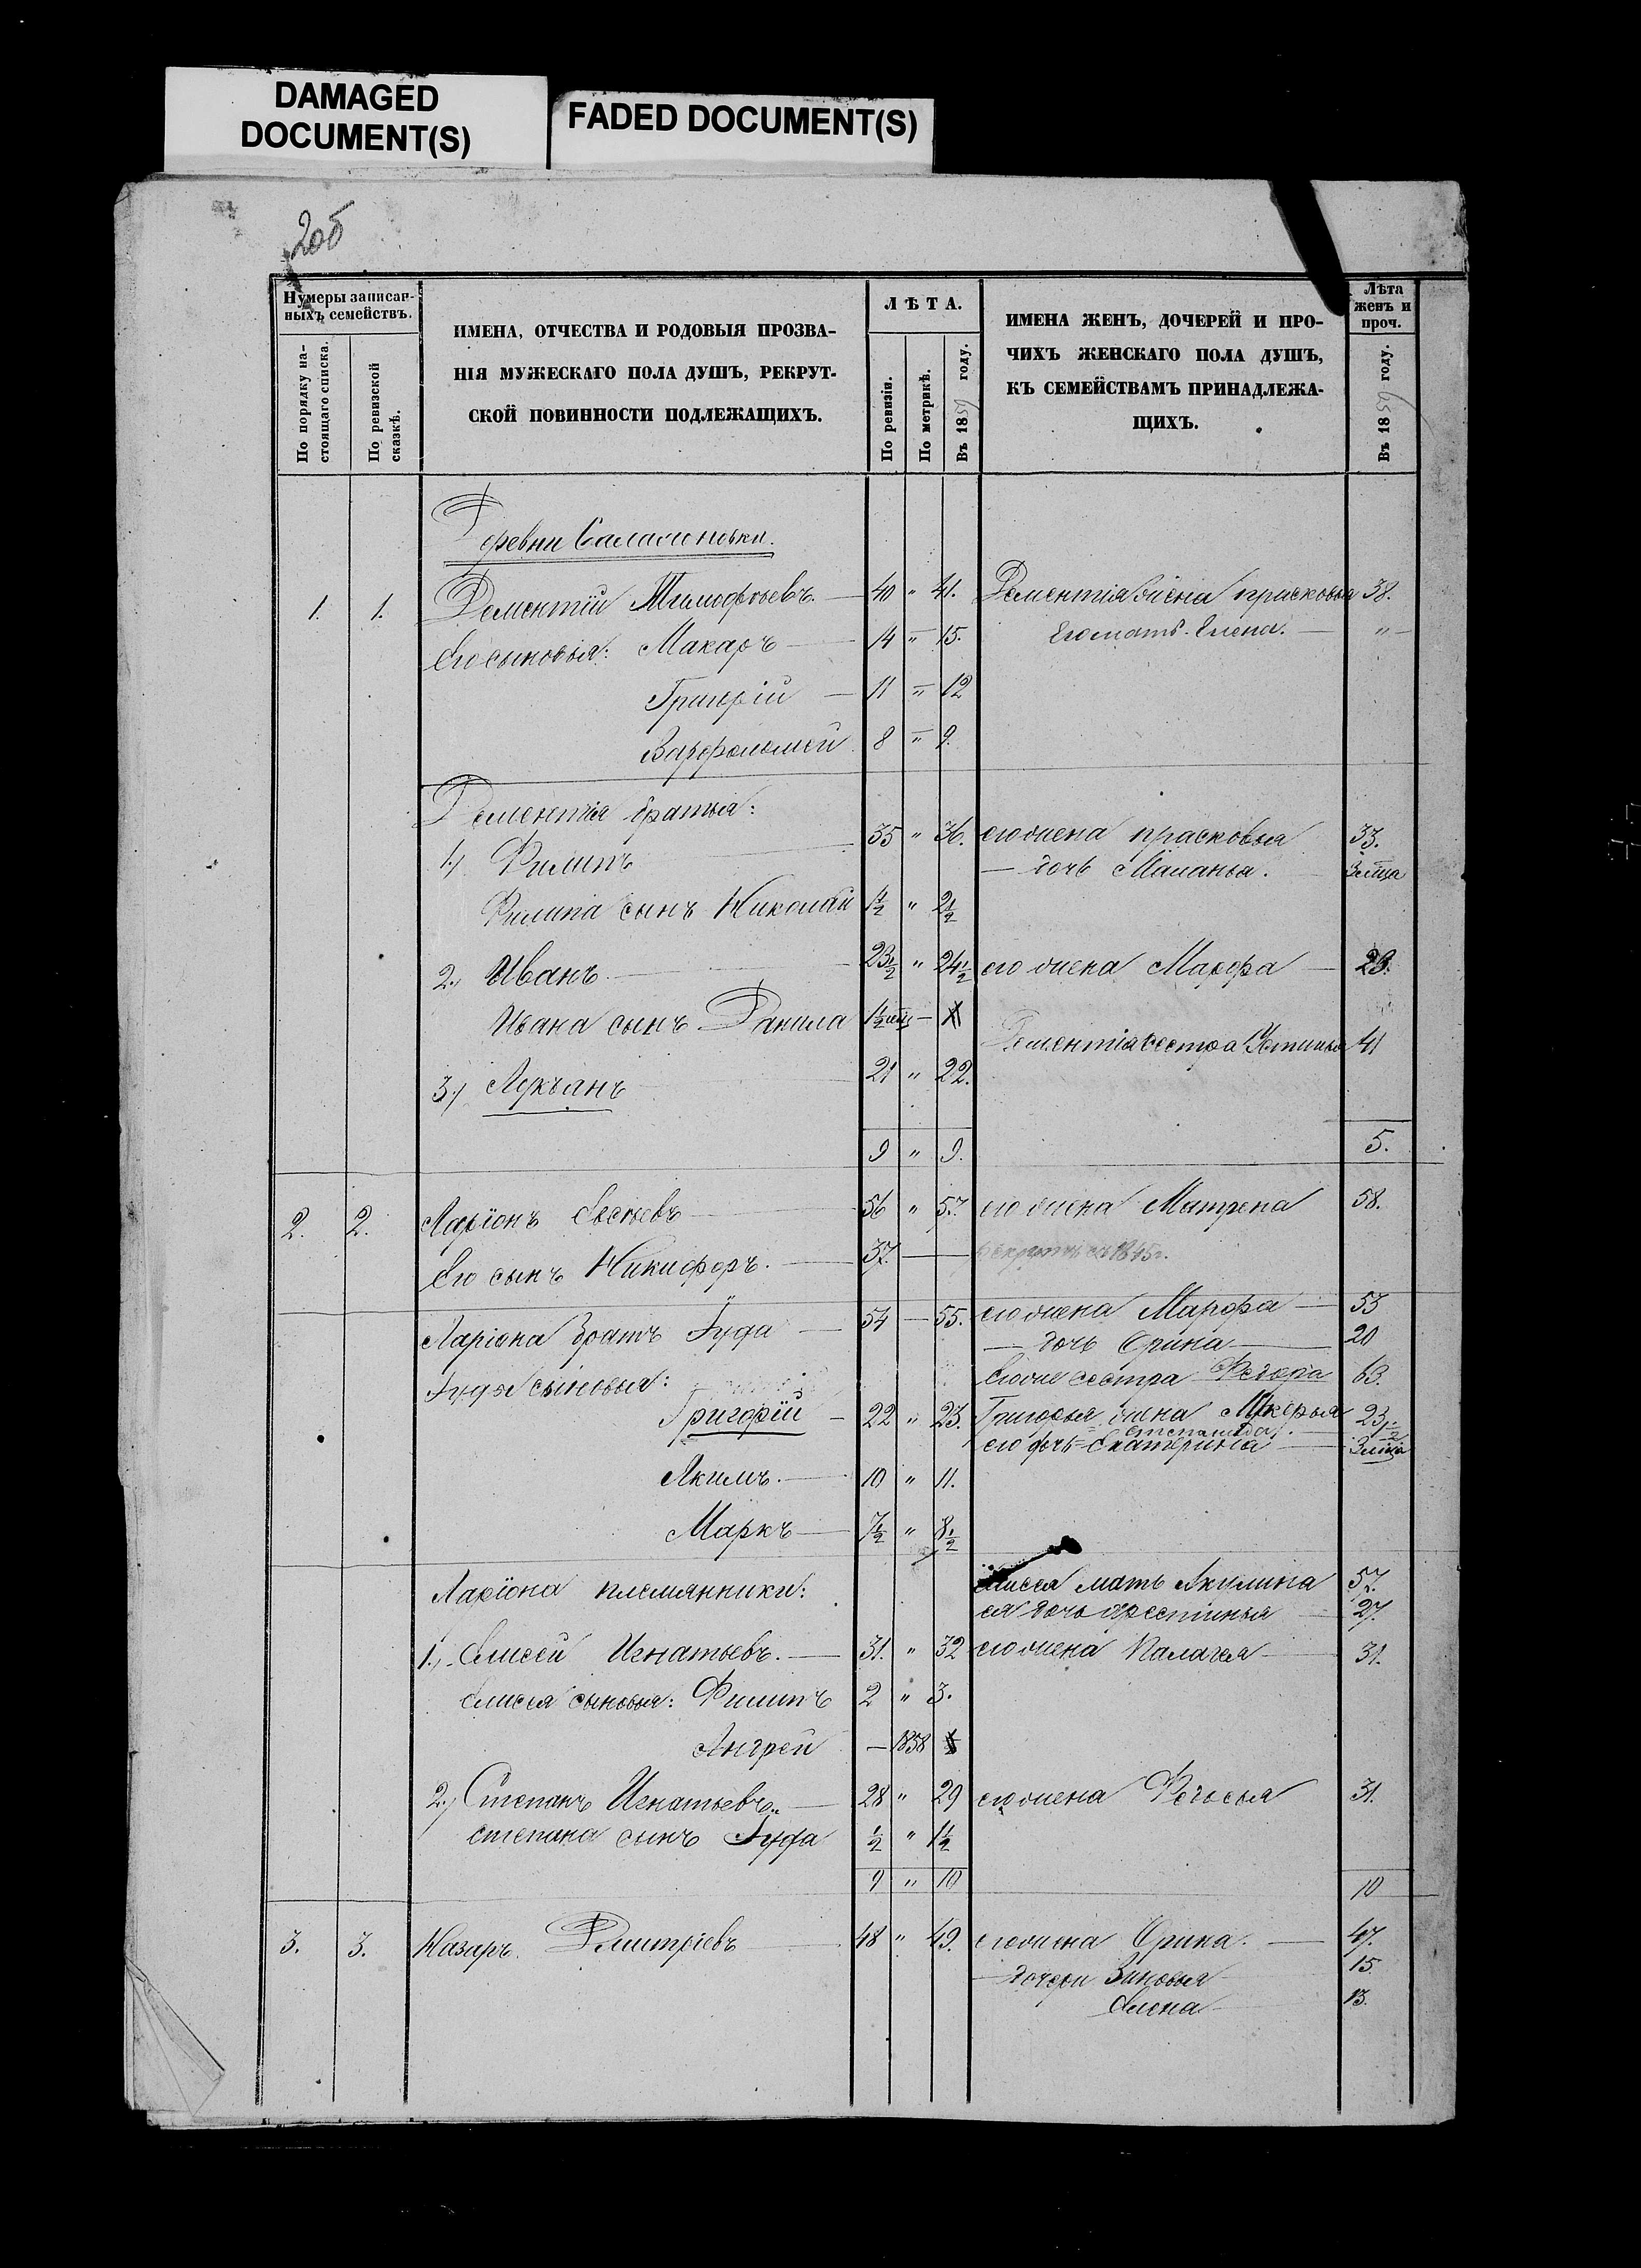 DAMAGED
DOCUMENT(S)
FADED DOCUMENT(S)
205
Нумеры записан-
ныхъ семействъ.
По порядку на-
стоящаго списка.
По ревизской
сказкѣ.
ИМЕНА, ОТЧЕСТВА И РОДОВЫЯ ПРОЗВА-
НІЯ МУЖЕСКАГО ПОЛА ДУШЪ, РЕКРУТ-
СКОЙ ПОВИННОСТИ ПОДЛЕЖАЩИХЪ.
ЛѢТА.
По ревизіи.
По метрикѣ.
Въ 1859 году.
ИМЕНА ЖЕНЪ, ДОЧЕРЕЙ И ПРО-
ЧИХЪ ЖЕНСКАГО ПОЛА ДУШЪ,
КЪ СЕМЕЙСТВАМЪ ПРИНАДЛЕЖА-
ЩИХЪ.
Лѣта
женъ и
проч.
Въ 1859 году.
Деревни
1. 1. Дементій Тимофѣевъ. 40 " 41. Дементія жена прасковья 38.
Его сыновья: Макаръ 14 " 15. Его мать Елена. "
Григорій 11 " 12
Варфоломей 8 " 9.
Дементія братья:
1.) Филипъ 35 " 36. его жена прасковья 33.
дочь Маланья. 3 мца
Филипа сынъ Николай 1½ " 2½
2.) Иванъ. 23½ " 24½ его жена Марфа 23.
Ивана сынъ Данила 1½
Дементія сестра Устинья 41
3.) Лукьянъ 21 " 22.
9 " 9. 5.
2. 2. Ларіонъ Евсѣевъ 56 " 57. его жена Матрена 58.
Его сынъ Никифоръ. 37. 1845г.
Ларіона братъ Іуда 54 — 55. его жена Марфа 53
дочь Орина 20
Іуды сыновья: сестра Федора 63.
Григорій 22 " 23. Григорья жена Лукерья 23½
Степанида.
его дочь Екатерина 3 мца
Якимъ. 10 " 11.
Маркъ 7½ " 8½
Ларіона племянники: Елисея мать Акулина 57.
ея дочь 27.
1.) Елисей Игнатьевъ. 31. " 32 его жена Палагея 31.
Елисея сыновья: Филипъ 2 " 3.
Андрей — 1858
2.) Степанъ Игнатьевъ. 28 " 29 его жена Федосья 31.
степана сынъ Іуда ½ " 1½
9 " 10 10
3. 3. Назаръ Дмитріевъ 48 " 49. его жена Орина. 47.
дочери Зиновья 15.
Елена 13.